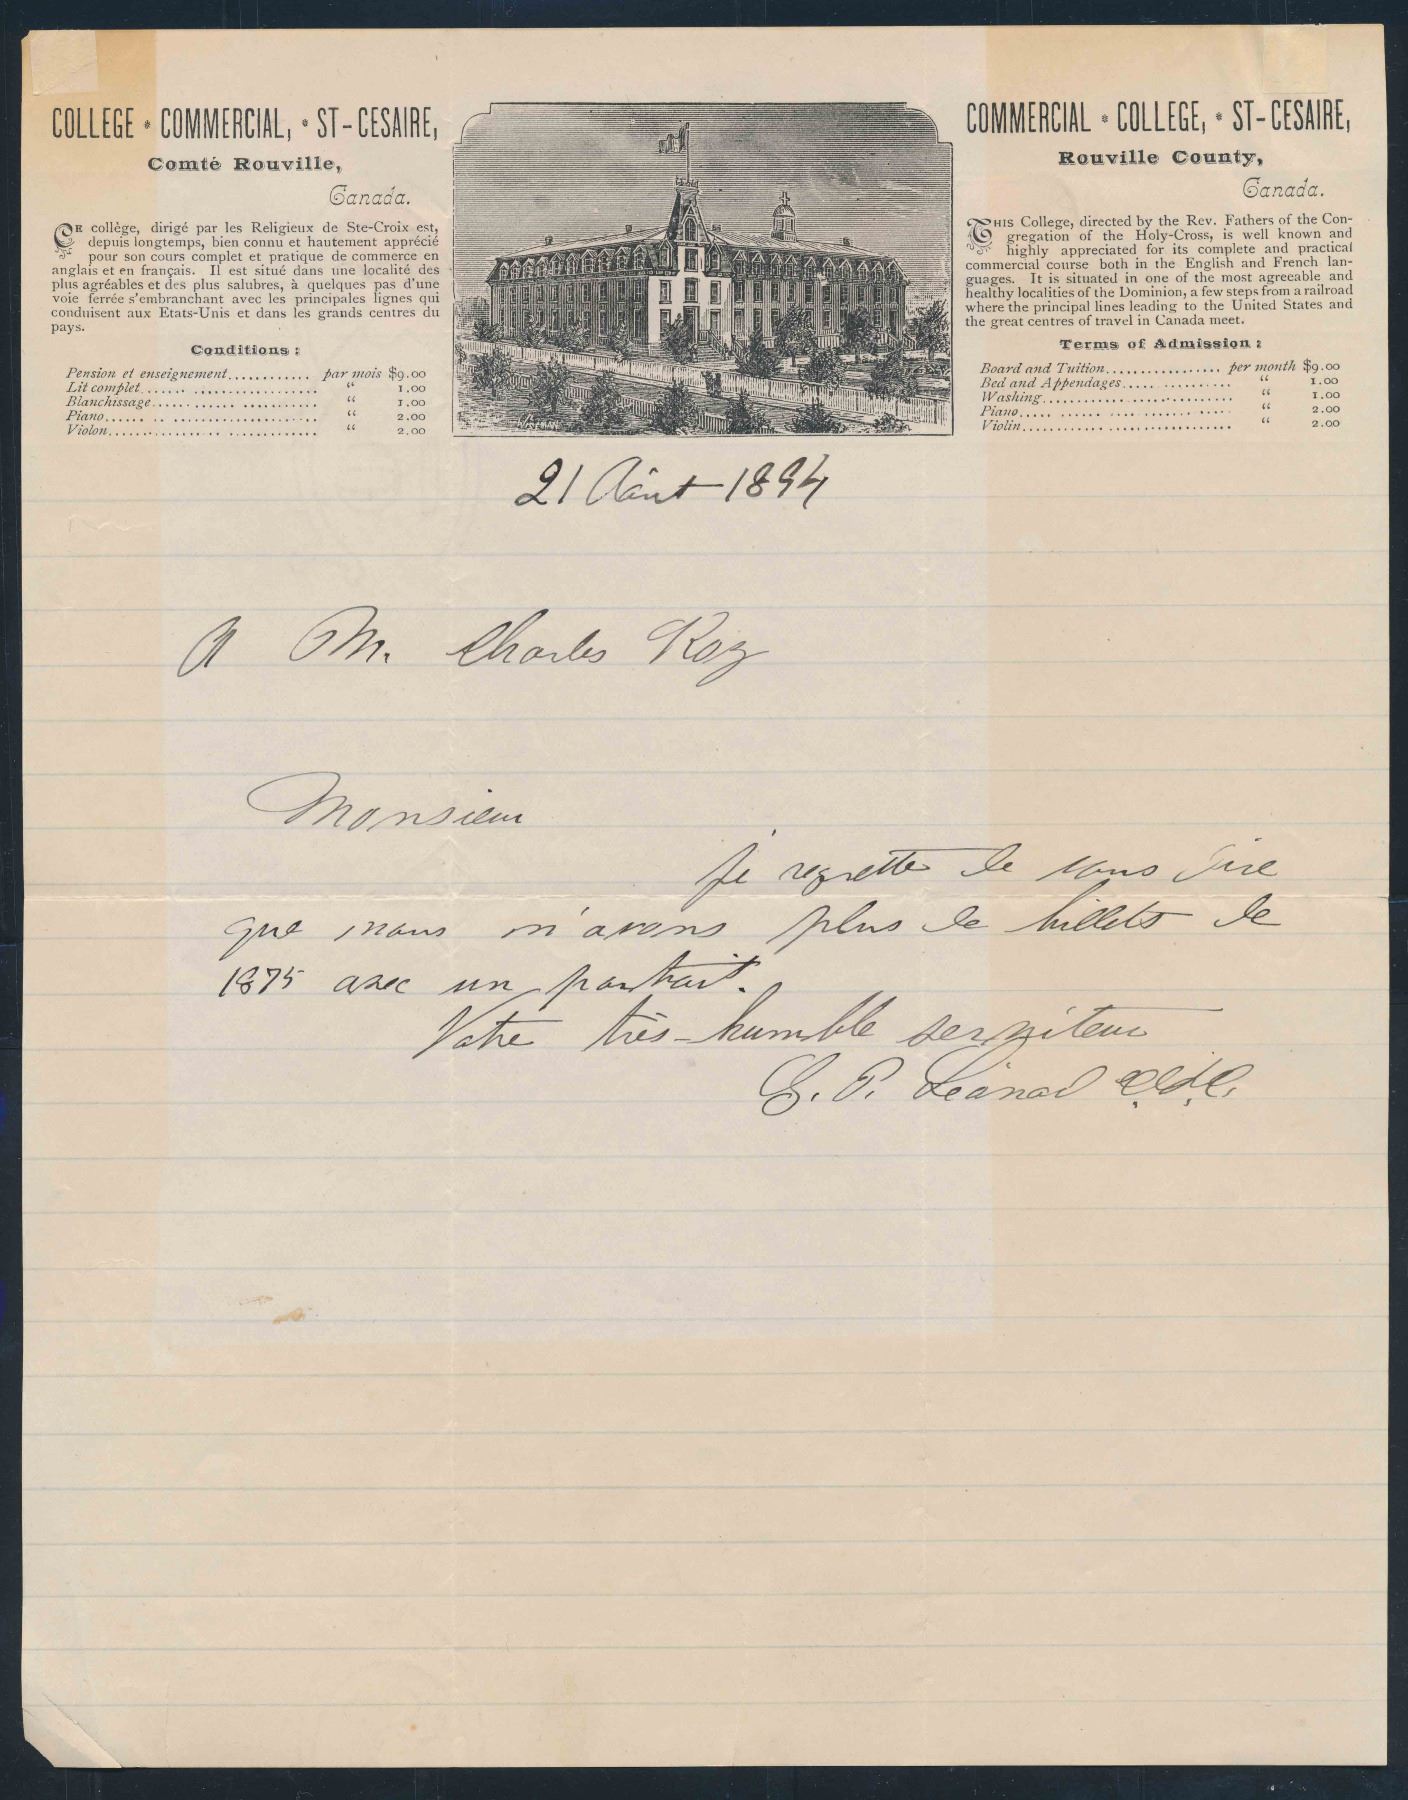 COLLEGE * COMMERCIAL, * ST-CESAIRE,
Comté Rouville,
Canada.
CE collège, dirigé par les Religieux de Ste-Croix est,
depuis longtemps, bien connu et hautement apprécié
pour son cours complet et pratique de commerce en
anglais et en français. Il est situé dans une localité des
plus agréables et des plus salubres, à quelques pas d'une
voie ferrée s'embranchant avec les principales lignes qui
conduisent aux Etats-Unis et dans les grands centres du
pays.
Conditions :
Pension et enseignement............ par mois $9.00
Lit complet...... .................... “ 1.00
Blanchissage..... ...... ............ “ 1.00
Piano...... .. ...................... “ 2.00
Violon................. ............. “ 2.00
COMMERCIAL * COLLEGE, * ST-CESAIRE,
Rouville County,
Canada.
THIS College, directed by the Rev. Fathers of the Con-
gregation of the Holy-Cross, is well known and
highly appreciated for its complete and practical
commercial course both in the English and French lan-
guages. It is situated in one of the most agreeable and
healthy localities of the Dominion, a few steps from a railroad
where the principal lines leading to the United States and
the great centres of travel in Canada meet.
Terms of Admission :
Board and Tuition................. per month $9.00
Bed and Appendages..... .......... “ 1.00
Washing............................ “ 1.00
Piano..... ...... .................. “ 2.00
Violin............ .................. “ 2.00
21 Août 1894
A M. Charles Roy
Monsieur
Je regrette de vous dire
que nous n'avons plus de billets de
1875 avec un portrait.
Votre très-humble serviteur
P. c.s.c.